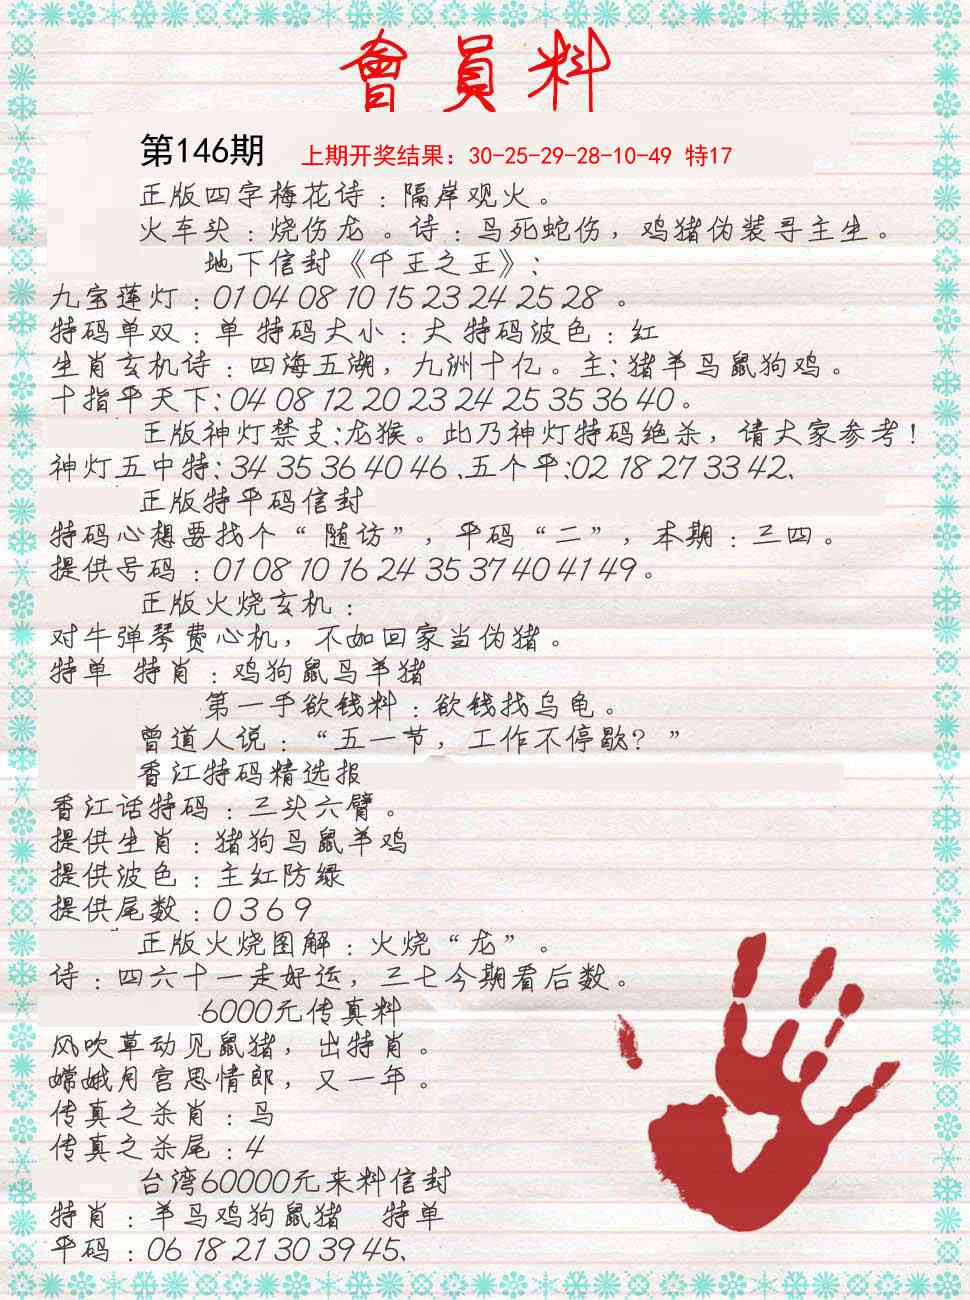 會員料
第146期 上期开奖结果：30-25-29-28-10-49 特17
正版四字梅花诗：隔岸观火。
火车头：烧伤龙。诗：马死蛇伤，鸡猪伪装寻主生。
地下信封《千王之王》：
九宝莲灯：01 04 08 10 15 23 24 25 28 。
特码单双：单 特码大小：大 特码波色：红
生肖玄机诗：四海五湖，九洲十亿。主：猪羊马鼠狗鸡。
十指平天下：04 08 12 20 23 24 25 35 36 40。
正版神灯禁支：龙猴。此乃神灯特码绝杀，请大家参考！
神灯五中特：34 35 36 40 46 .五个平:02 18 27 33 42.
正版特平码信封
特码心想要找个“随访”，平码“二”，本期：三四。
提供号码：01 08 10 16 24 35 37 40 41 49。
正版火烧玄机：
对牛弹琴费心机，不如回家当伪猪。
特单 特肖：鸡狗鼠马羊猪
第一手欲钱料：欲钱找乌龟。
曾道人说：“五一节，工作不停歇？”
香江特码精选报
香江话特码：三头六臂。
提供生肖：猪狗马鼠羊鸡
提供波色：主红防绿
提供尾数：0 3 6 9
正版火烧图解：火烧“龙”。
诗：四六十一走好运，三七今期看后数。
6000元传真料
风吹草动见鼠猪，出特肖。
嫦娥月宫思情郎，又一年。
传真之杀肖：马
传真之杀尾：4
台湾60000元来料信封
特肖：羊马鸡狗鼠猪 特单
平码：06 18 21 30 39 45.